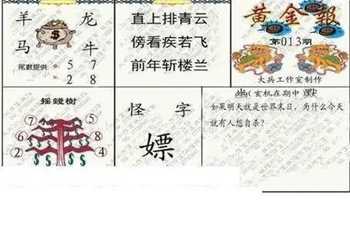 羊 龙
$
马 牛
尾數提供 5 7
2 8
直上排青云
傍看疾若飞
前年斩楼兰
黄金報
第013期
大兵工作室制作
摇錢樹
7 8
5
2 4
怪 字
嫖
幽(玄机在期中 默
如果明天就是世界末日，为什么今天
就有人想自杀？